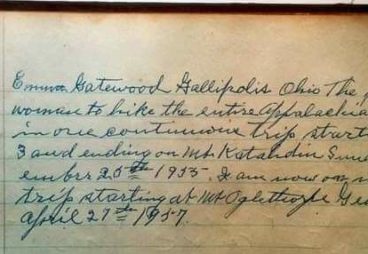 Emma Gatewood Gallipolis Ohio The
woman to hike the entire Appalachia
in one continuous trip start
3 and ending on Mt. Katahdin
ember 25th 1955. I am now on
trip starting at Mt Oglethorpe Geo
April 27th 1957.